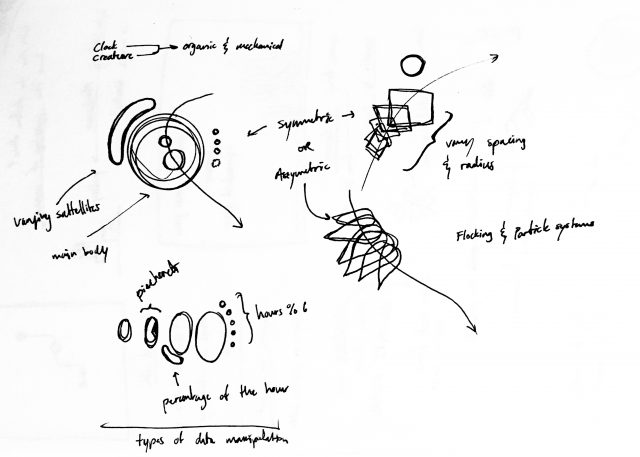 Clock
creature
organic & mechanical
symmetric
OR
Asymmetric
vary spacing
& radius
varying sattellites
main body
Flocking & Particle systems
piecharts
hours % 6
percentage of the hour
types of data manipulation